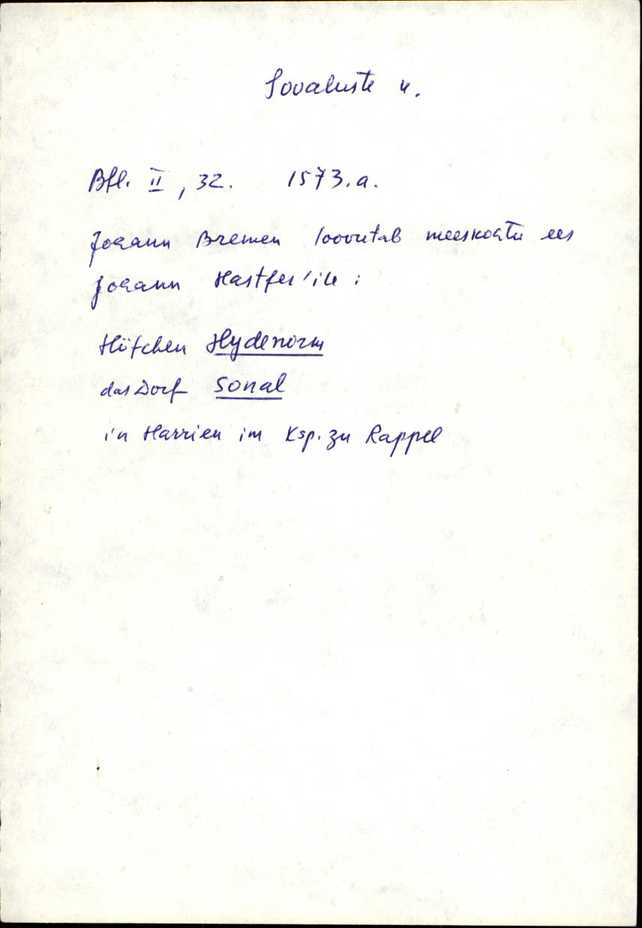 Sooaluste k.
Bfl. II, 32. 1573.a.
Johann Bremen loovutab meeskohtu ees
Johann Hastfer'ile:
Höfchen Hydenorm
das Dorf Sonal
in Harrien im Ksp. zu Rappel